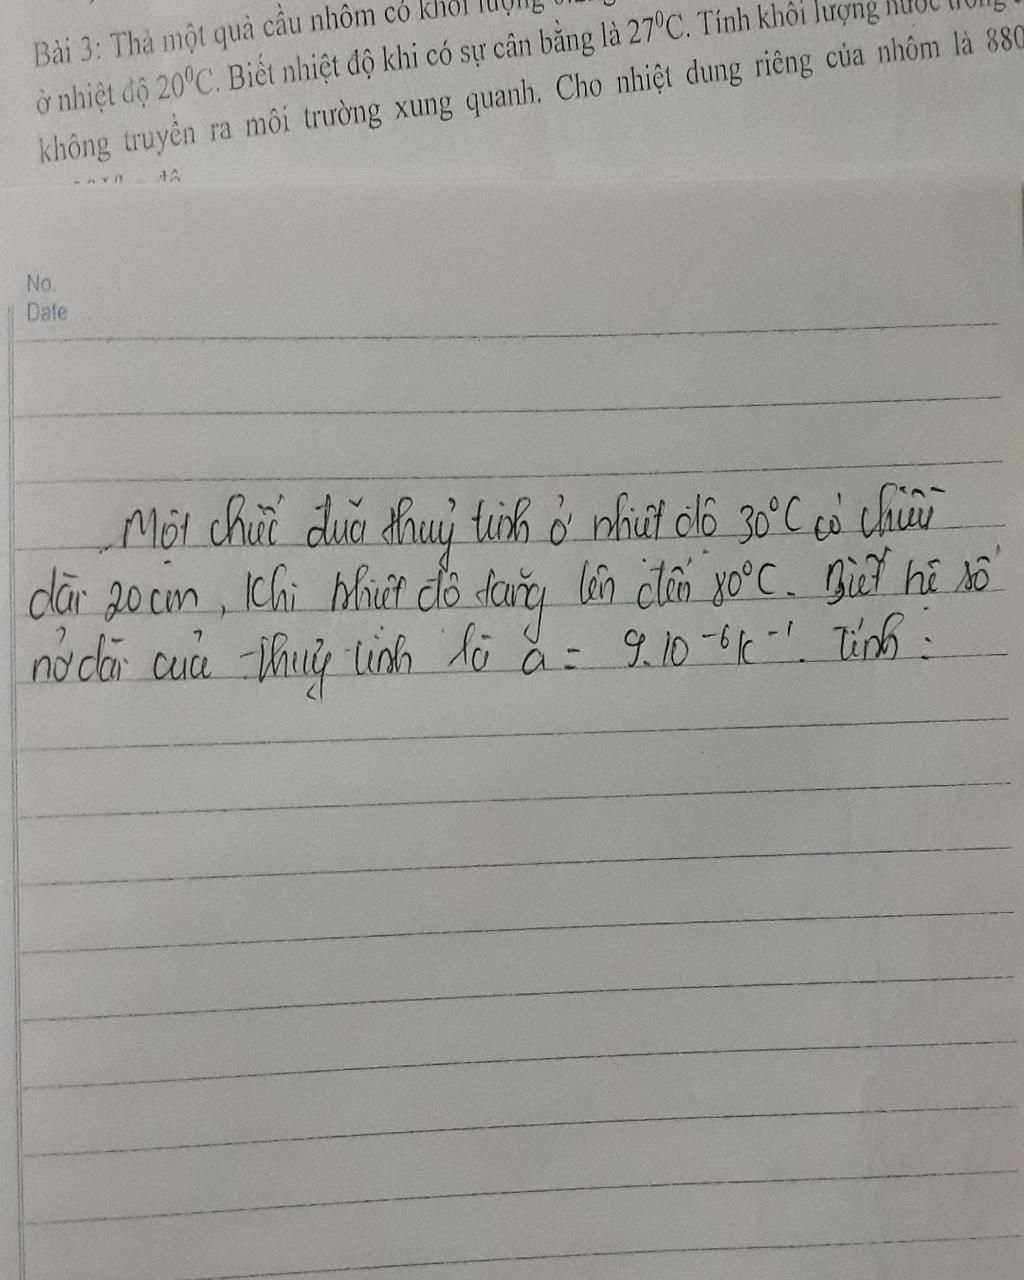 Bài 3: Thả một quả cầu nhôm có khối lượng
ở nhiệt độ 20⁰C. Biết nhiệt độ khi có sự cân bằng là 27⁰C. Tính khối lượng nước trong
không truyền ra môi trường xung quanh. Cho nhiệt dung riêng của nhôm là 880
No.
Date
Một chiếc đuã thuỷ tinh ở nhiệt độ 30°C có chiều
dài 20cm, Khi nhiệt độ tăng lên đến 80°C. Biết hệ số
nở dài cuả thuỷ tinh là α = 9.10⁻⁶K⁻¹. Tính: